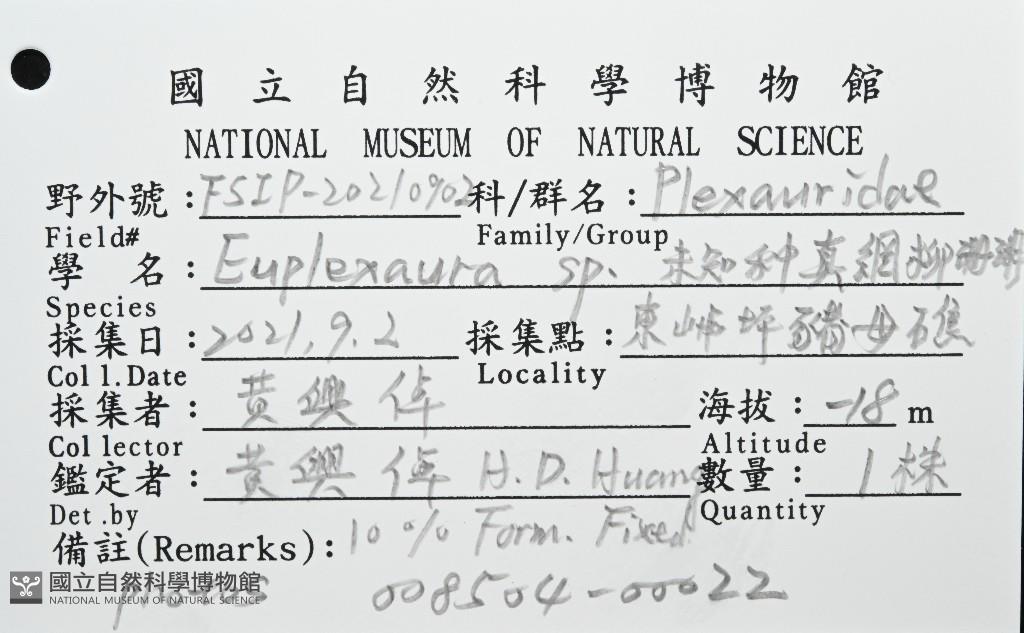 國立自然科學博物館
NATIONAL MUSEUM OF NATURAL SCIENCE
野外號:FSIP-20210902 科/群名:Plexauridae
Field# Family/Group
學 名:Euplexaura sp. 未知种真網柳珊瑚
Species
採集日:2021.9.2 採集點:東 坪豬母礁
Coll.Date Locality
採集者:黃興倬 海拔:-18 m
Collector Altitude
鑑定者:黃興倬 H.D. Huang 數量:1株
Det.by Quantity
備註(Remarks):10% Form. Fixed
國立自然科學博物館
NATIONAL MUSEUM OF NATURAL SCIENCE
008504-00022